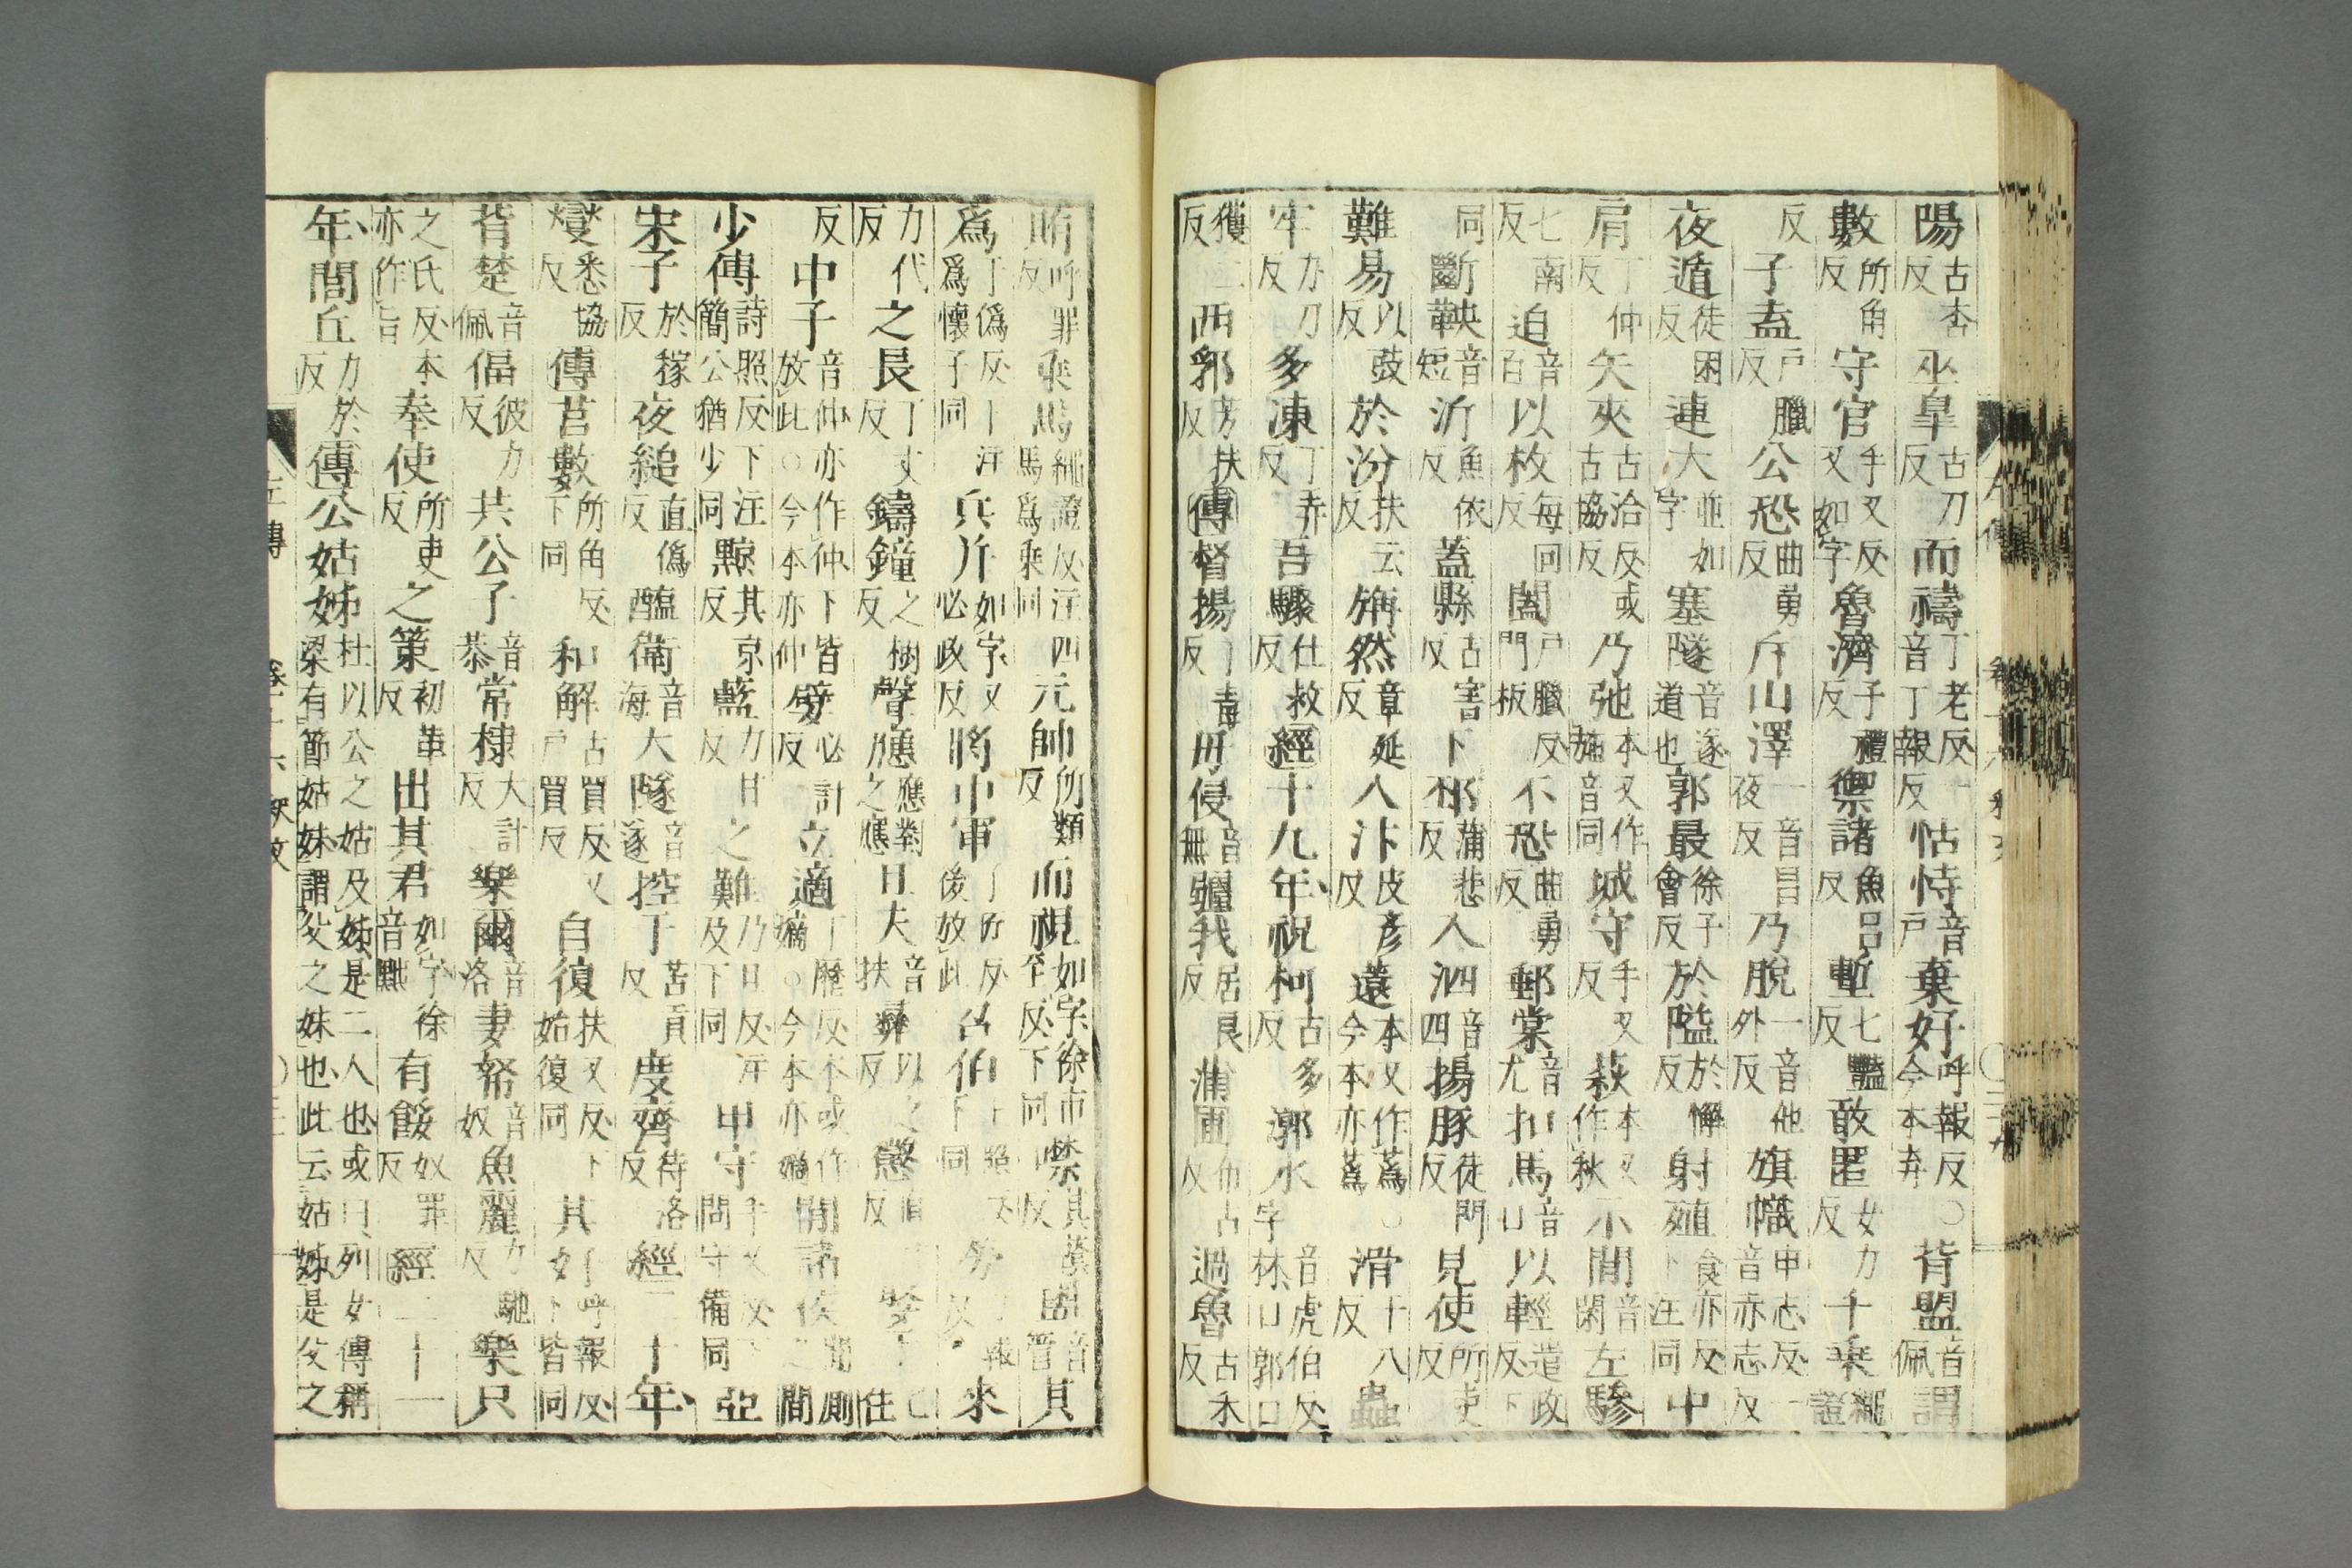 陽古杏反巫皐古刀反而禱丁老反一音丁報反怙恃音户棄好呼報反○今本弃背盟音佩謂
數所角反守官手又反又如字魯濟子禮反禦諸魚呂反塹七豔反敢匿女力反千乘繩證
反子盍戶臘反公恐曲勇反斥山澤一音昌夜反乃脫一音他外反旆幟申志反一音赤志反
夜遁徒困反連大並如字塞隧音遂道也郭最徐子會反於隘於懈反射殖食亦反下注同中
肩丁仲反矢夾古洽反或古協反乃弛本又作施音同城守手又反萩本又作秋不閒音閑左驂
七南反迫音百以枚每回反闔戶臘反門板不恐曲勇反郵棠音尤扣馬音口以輕遣政反下
同斷鞅音短沂魚依反蓋縣古害反下邳蒲悲反入泗音四揚豚徒門反見使所吏反
難易以鼓反於汾扶云反旃然章延反入汴皮彥反薳本又作蒍○今本亦蒍滑十八反蟲
牢力刀反多凍丁弄反吾驟仕救反經十九年祝柯古多反漷水音虎伯反字林口郭口
獲反西郛芳扶反傳督揚丁毒反毋侵音無疆我居良反蒲圃布古反過魯古禾反
賄呼罪反乘馬繩證反注四馬爲乘同元帥所類反而視如字徐市禁反下同其蓋反音管其
爲丁僞反下注爲懷子同兵斤如字又必政反將中軍後放此召伯上照反下同勞力報反來
力代反之長丁丈反鑄鐘之樹反聲應應對之應且夫音扶彝以之反
反中子音仲亦作仲下皆放此○今本亦仲嬖必計反立適丁歷反本或作嫡○今本亦嫡閒諸侯閒厠之閒
少傅詩照反下注簡公猶少同黥其京反藍力甘反之難乃旦反注及下同甲守手又反下問守備同亞
宋子於稼反夜縋直僞反醢衛音海大隧音遂控于苦貢反度齊待洛反經二十年
燮悉協反傳莒數所角反下同和解古買反又戶買反自復扶又反下始復同其好呼報反下皆同
背楚音佩偪彼力反共公子音恭常棣大計反樂爾音洛妻帑音奴魚麗力馳反樂只
之氏反本亦作旨奉使所吏反之策初革反出其君如字徐音黜有餒奴罪反經二十一
年閭丘力於反傳公姑姊杜以公之姑及姊是二人也或曰列女傳稱梁有節姑妹謂父之妹也此云姑姊是父之